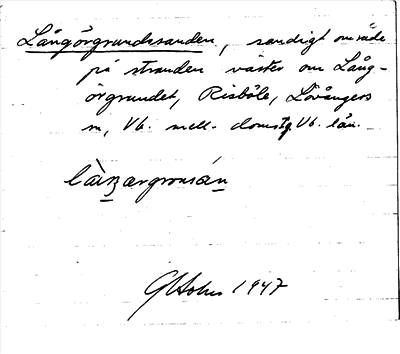 Långörgrundssanden, sandigt område
på stranden väster om Lång-
örgrundet, Risböle, Lövångers
sn, Vb. mell. domstg. Vb. län.
GHolm 1947